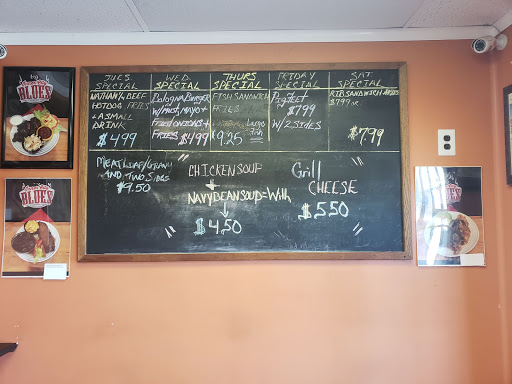 TUES
SPECIAL
NATHAN'S BEEF
HOTDOG FRIES
& A SMALL
DRINK
$4.99
WED
SPECIAL
Bologna Burger
W/Must, MAYO +
Fried ONIONS +
FRIES $4.99
THURS
SPECIAL
FISH SANDWICH
FRIES
$9.25
FRIDAY
SPECIAL
Pig Feet
$7.99
W/2 SIDES
SAT
SPECIAL
RIB SANDWICH
$7.99
$7.99
MEATLOAF/GRAVY
AND TWO SIDES
$9.50
CHICKEN SOUP
+
NAVY BEAN SOUP = With
$4.50
Grill
CHEESE
$5.50
BLUES
BLUES